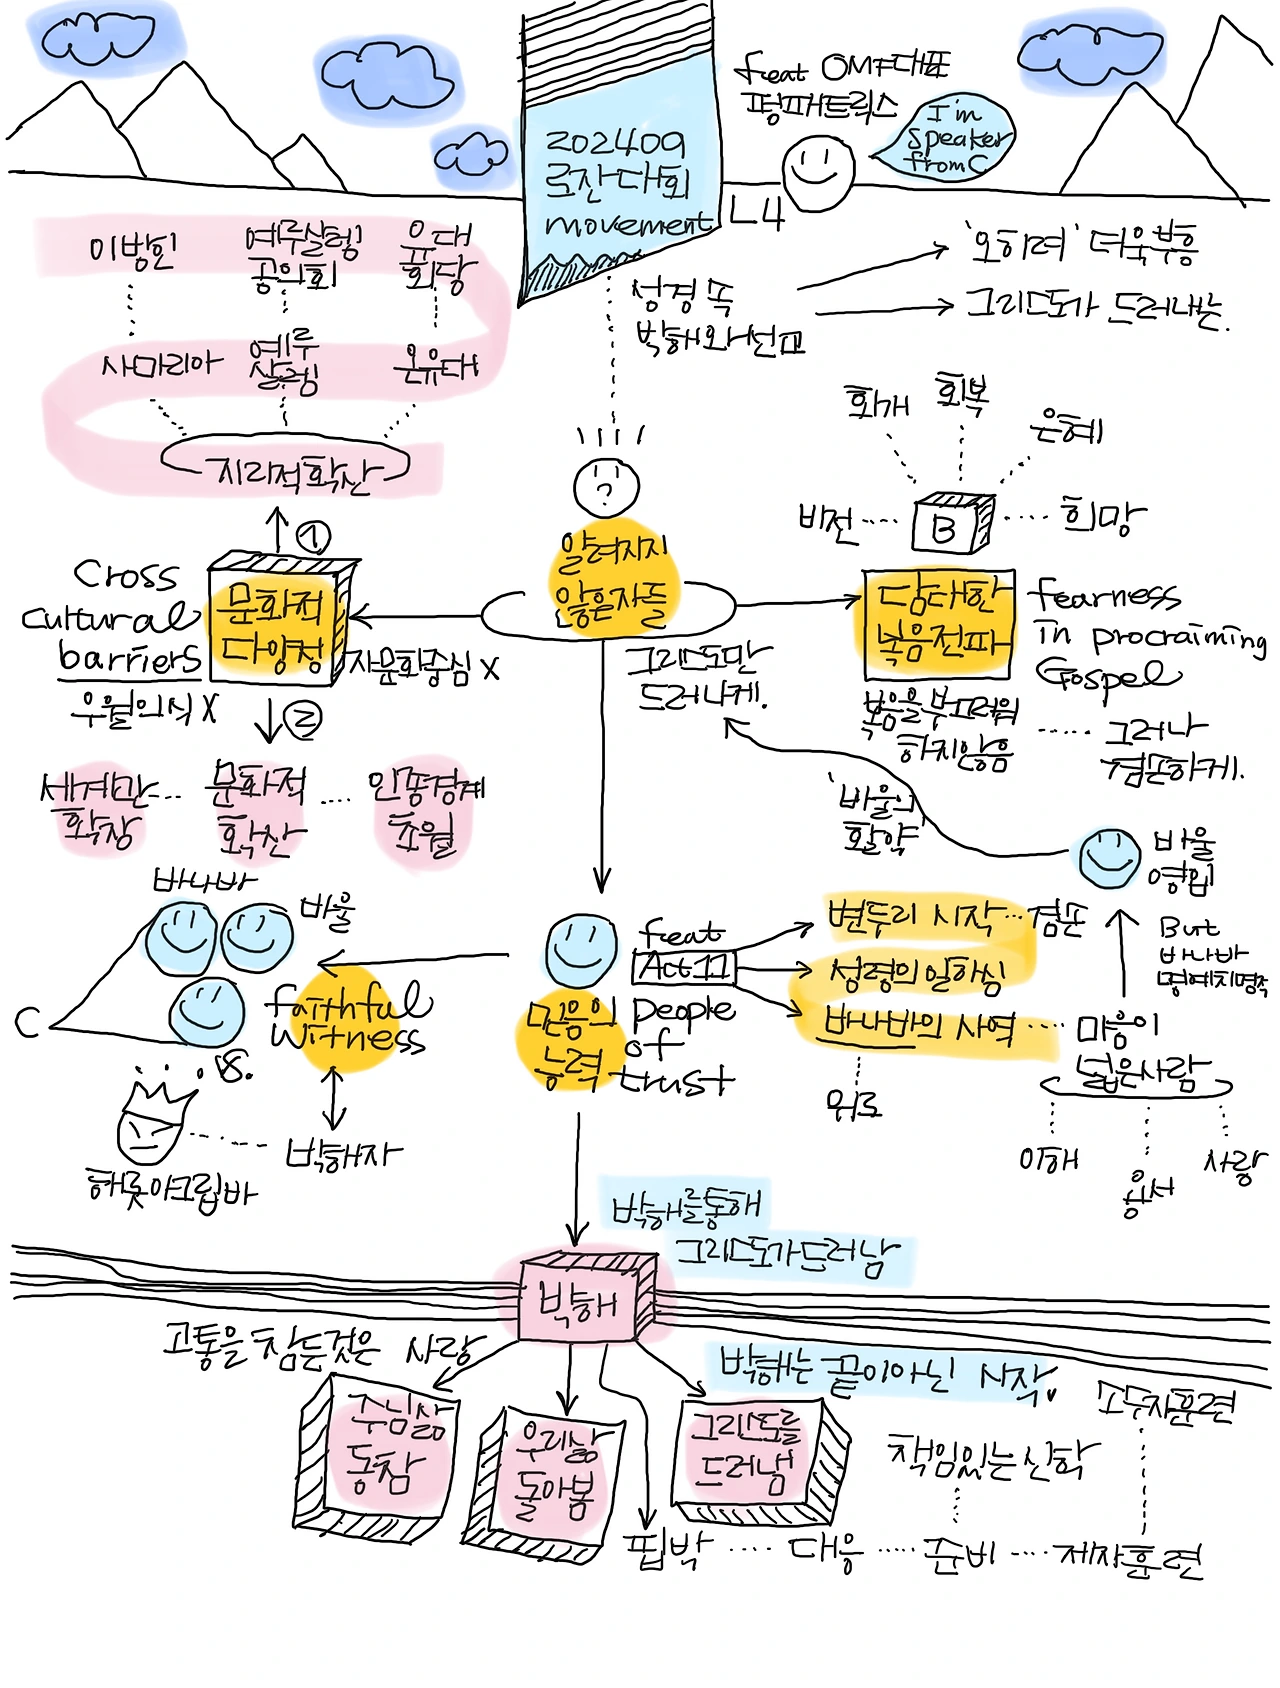 feat OMF대표
펑패트릭스
I'm
Speaker
from C
202409
로잔대회
movement
L4
이방인
예루살렘
공의회
유대
회당
사마리아
예루
살렘
온유대
지리적확산
성경 속
박해와선교
'오히려' 더욱부흥
그리스도가 드러내는.
회개
회복
은혜
비전
B
희망
?
알려지지
않은자들
①
Cross
Cultural
barriers
우월의식 X
문화적
다양성
자문화중심 X
②
그리스도만
드러나게.
담대한
복음전파
fearness
in procraiming
Gospel
복음을 부끄러워
하지않음
그러나
겸손하게.
세계관
확장
문화적
확산
인종경계
초월
'바울의
활약'
바울
영입
바나바
바울
C
faithful
witness
vs.
헤롯아그립바
박해자
feat
Act 11
믿음의
능력
people
of
trust
변두리 시작
겸손
성령의 일하심
바나바의 사역
위로
But
바나바
명예치명적
마음이
넓은사람
이해
용서
사랑
박해를통해
그리스도가드러남
박해
고통을 참는것은 사랑
박해는 끝이아닌 시작.
주님삶
동참
우리삶
돌아봄
그리스도를
드러냄
소수자훈련
책임있는신학
핍박
대응
준비
제자훈련